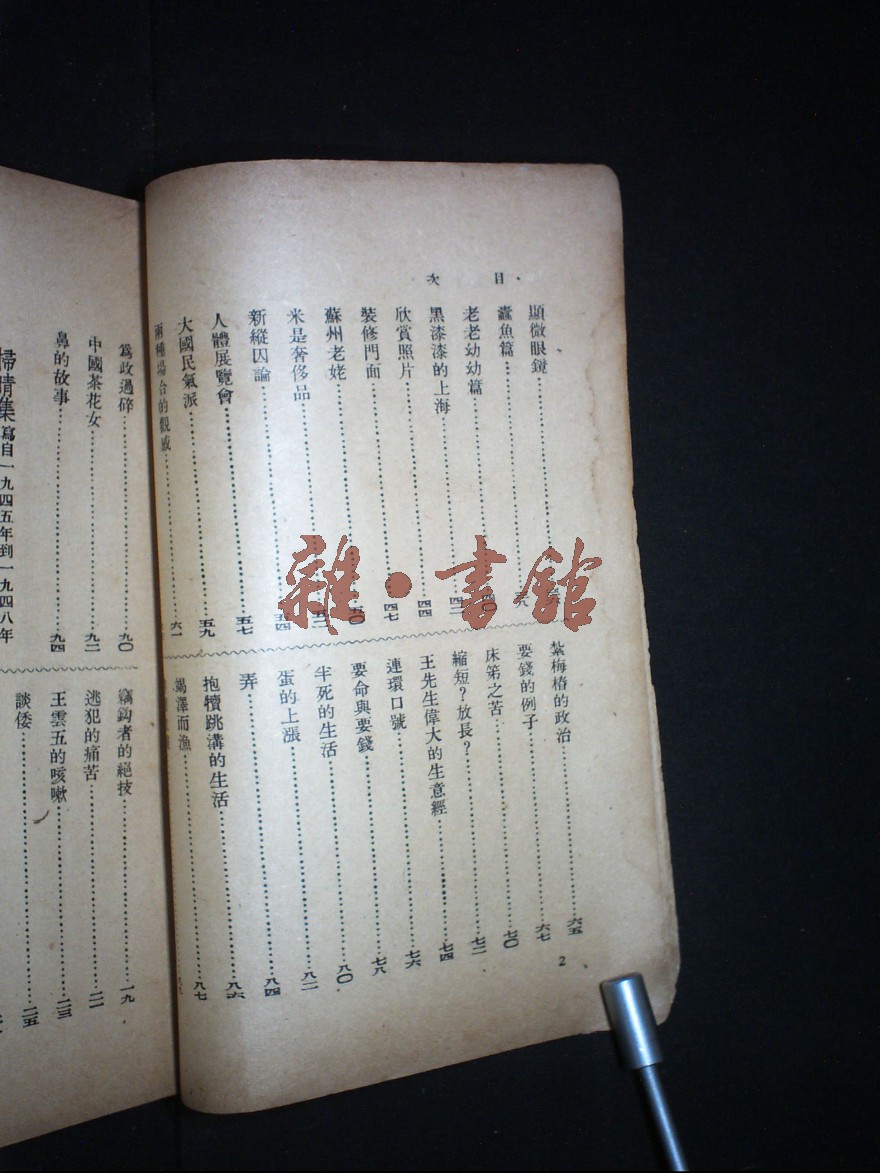 目次
顯微眼鏡
蠹魚篇……九
老老幼幼篇……四〇
黑漆漆的上海……四二
欣賞照片……四四
裝修門面……四七
蘇州老姥……五〇
米是奢侈品……五二
新縱囚論……五四
人體展覽會……五七
大國民氣派……五九
兩種場台的觀感……六一
紮梅樁的政治……六五
要錢的例子……六七
床笫之苦……七〇
縮短?放長?……七二
王先生偉大的生意經……七四
連環口號……七六
要命與要錢……七八
半死的生活……八〇
蛋的上漲……八二
弄……八四
抱犢跳溝的生活……八六
竭澤而漁……八七
2
爲政過碎……九〇
中國茶花女……九二
鼻的故事……九四
集 寫自一九四五年到一九四八年
竊鈎者的絕技……一九
逃犯的痛苦……二一
王雲五的咳嗽……二三
談倭……二五
雜·書館